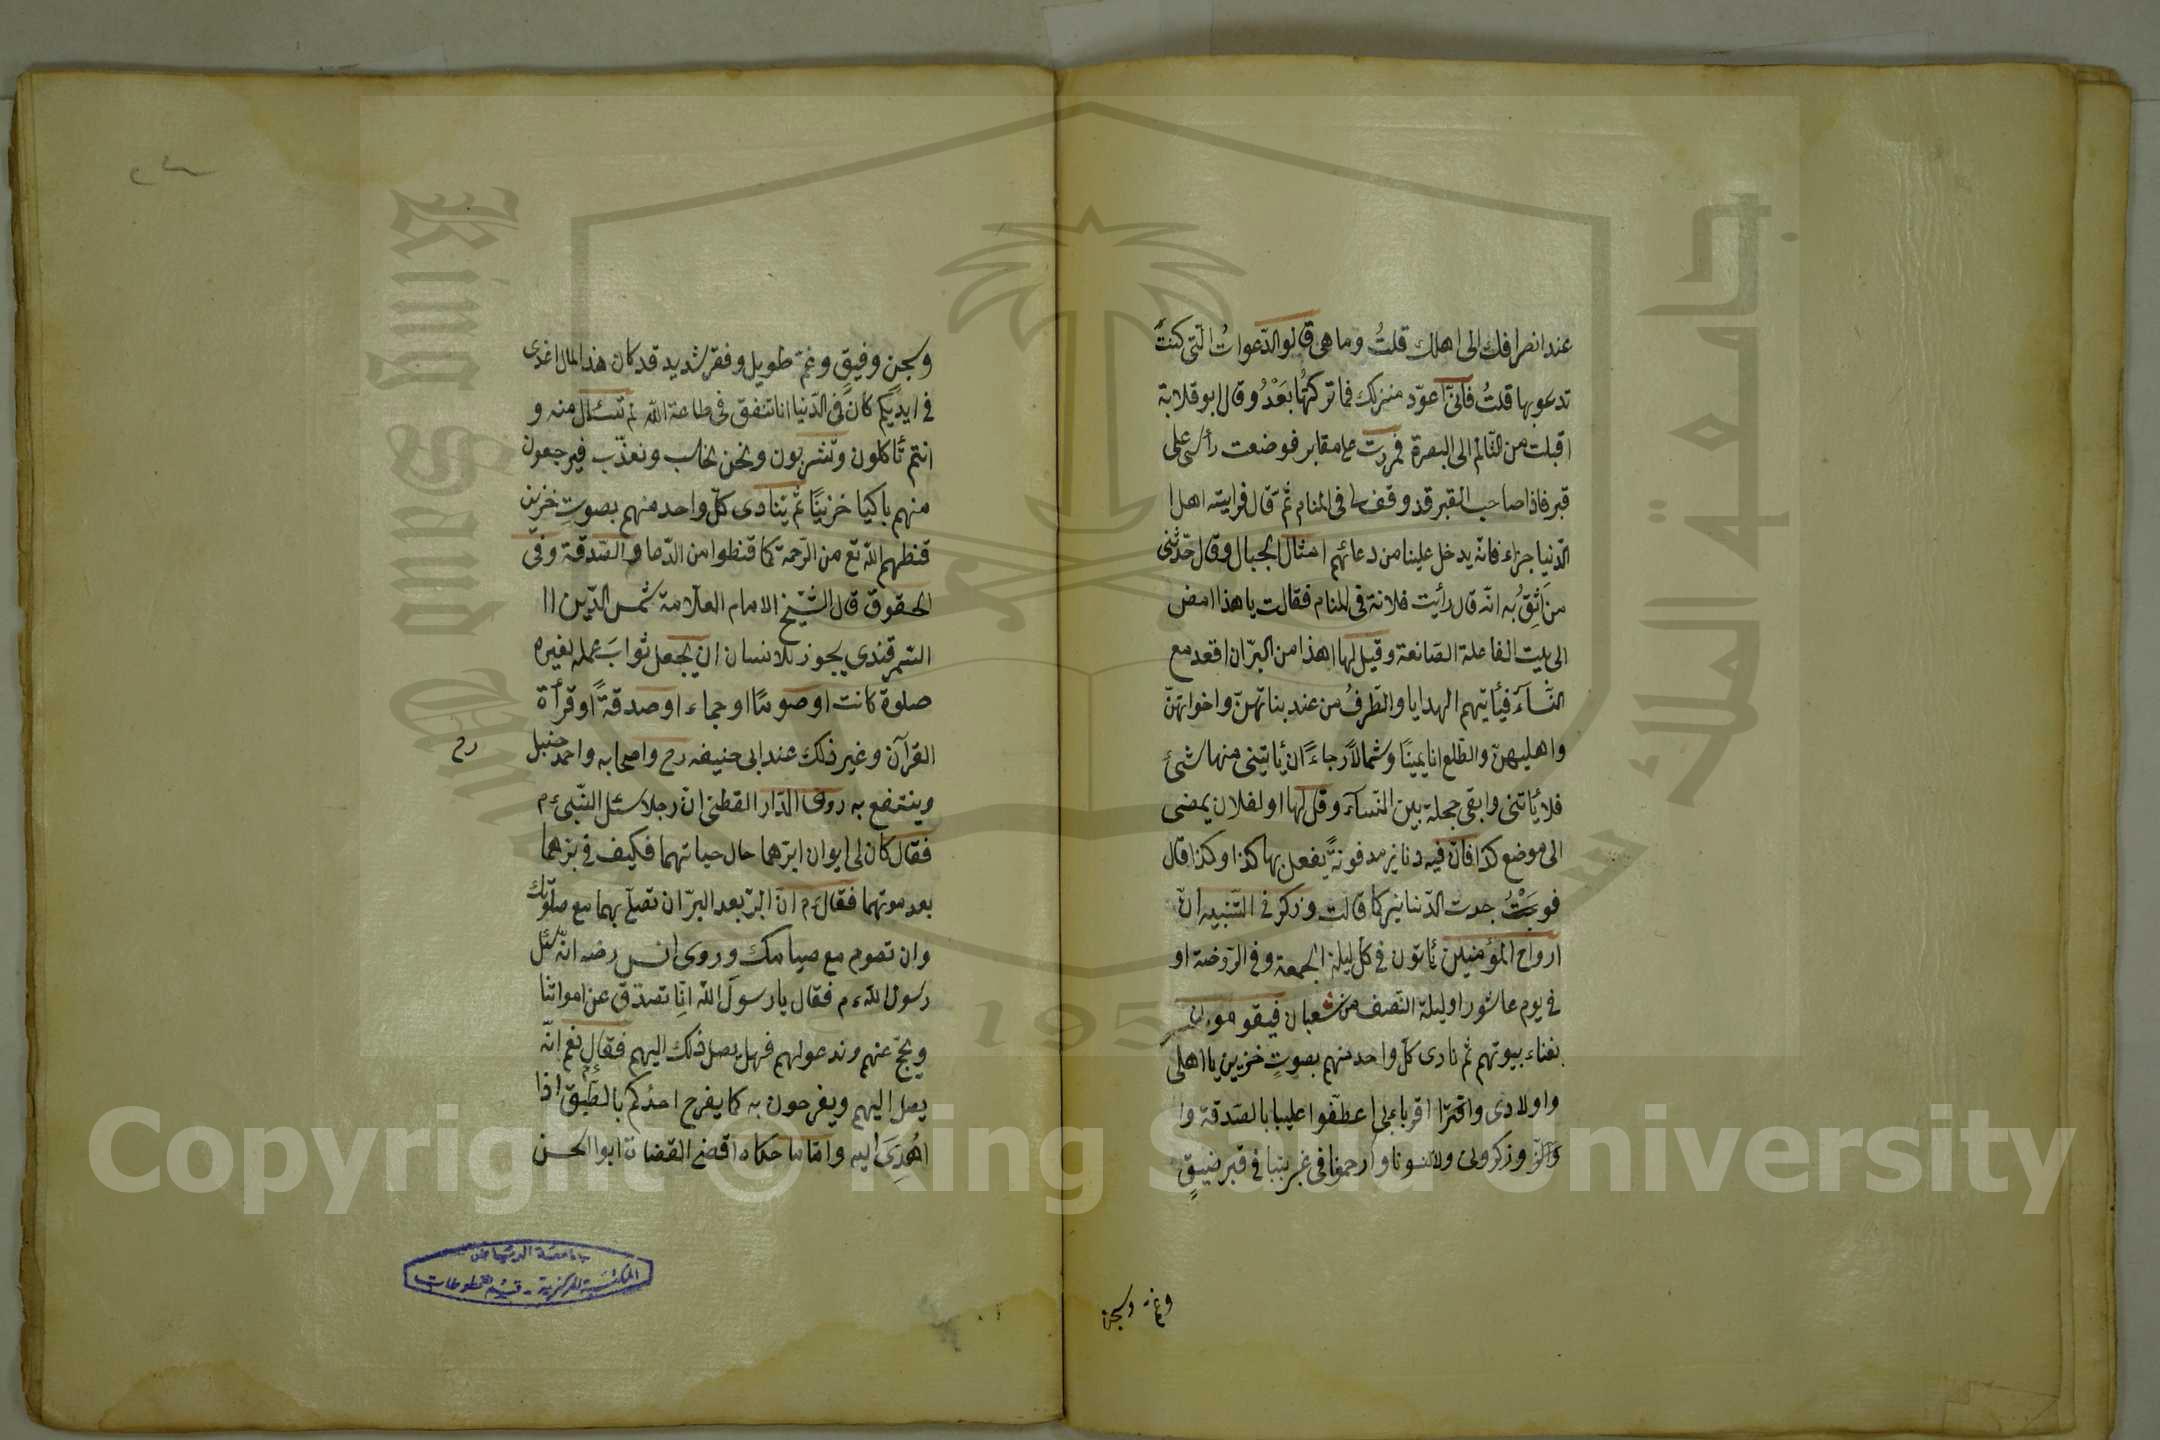 عند انصرافك الى اهلك قلتُ وما هى قالو الدّعواتُ الّتى كنتَ
تدعو بها قلتُ فانّى اعوّد منزلك فما تركتُها بَعْدُ وقال ابو قلابة
اقبلت من الشّام الى البصرة فمررت على مقابر فوضعت رأسى على
قبر فاذا صاحب القبر قد وقف لى فى المنام ثمّ قال اهل ا
الدّنيا جزاء فانّه يدخل علينا من دعائهم امثال الجبال وقال حدّثنى
من اَثِقُ به انّه قال رأيت فلانة فى المنام فقالت يا هذا امض
الى بيت الفاعلة الصّانعة وقيل لها اهذا من البرّ ان اقعد مع
النّسآء فيأتيهم الهدايا والطّرفُ من عند بناتهنّ واخواتهنّ
واهليهنّ والطّلع انا يمينًا وشمالاً رجاءً ان يأتينى منها شئ
فلا يأتنى وابقى خجلة بين النّسآء وقل لها او لفلان يمضى
الى موضع كذا فانّ فيه دنانير مدفونةً يفعل بها كذا وكذا قال
جدت الدّنانير كما قالت وذكر فى التّنبيه انّ
ارواح المؤمنين يأتون فى كلّ ليلة الجمعة وفى الرّوضة او
فى يوم عاشورا وليلة النّصف من شعبان فيقومون
بفناء بيوتهم ثم نادى كلّ واحد منهم بصوتٍ حزين يا اهلى
واولادى اقربائى اعطفوا علينا بالصّدقة وا
وذكرونى ولا تنسونا وارحمونا فى غربتنا فى قبر ضيقٍ
وغمّ وسجن
وسجنٍ وفيقٍ وغمّ طويل وفقر شديد قد كان هذا المال اغدى
فى ايديكم كان فى الدّنيا انا ننفق فى طاعة الله لم تسئل منه و
انتم تأكلون وتشربون ونحن نحاسب ونعذّب فيرجعون
منهم باكيا حزينًا ثمّ ينادى كلّ واحد منهم بصوتٍ حزين
قنطهم الله تع من الرّحمة كما قنطوا من الدّعا والصّدقة وفى
الحقوق قال الشّيخ الامام العلّامة شمس الدّين ال
السّمرقندى يجوز للانسان ان يجعل ثوابَ عمله لغيره
صلوة كانت او صومًا او حجاء او صدقةً او قرأة
القرآن وغير ذلك عند ابى حنيفه رح واصحابه واحمد حنبل
رح
وينتفع به روى الدّار القطنى انّ رجلا سئل النّبىّ ءم
فقال كان لى ابوان ابرّهما حال حياتهما فكيف فى برّهما
بعد موتهما فقال ءم انّ البرّ بعد البرّ ان تصلّى بهما مع صلوتك
وان تصوم مع صيامك وروى انس رضه انّه سئل
رسول الله ءم فقال يا رسولَ الله انّا نصدّق عن امواتنا
ويحجّ عنهم وندعو لهم فهل يصل ذلك اليهم فقال نعم انّه
يصل اليهم ويفرحون به كما يفرح احدُكم بالطّبق اذا
اُهْدِىَ اليه وامّا ما حكاه اقضى القضاة ابو الحسن
جامعة الرياض
المكتبة المركزية - قسم المخطوطات
Copyright © King Saud University
King Saud University
جامعة الملك سعود
195